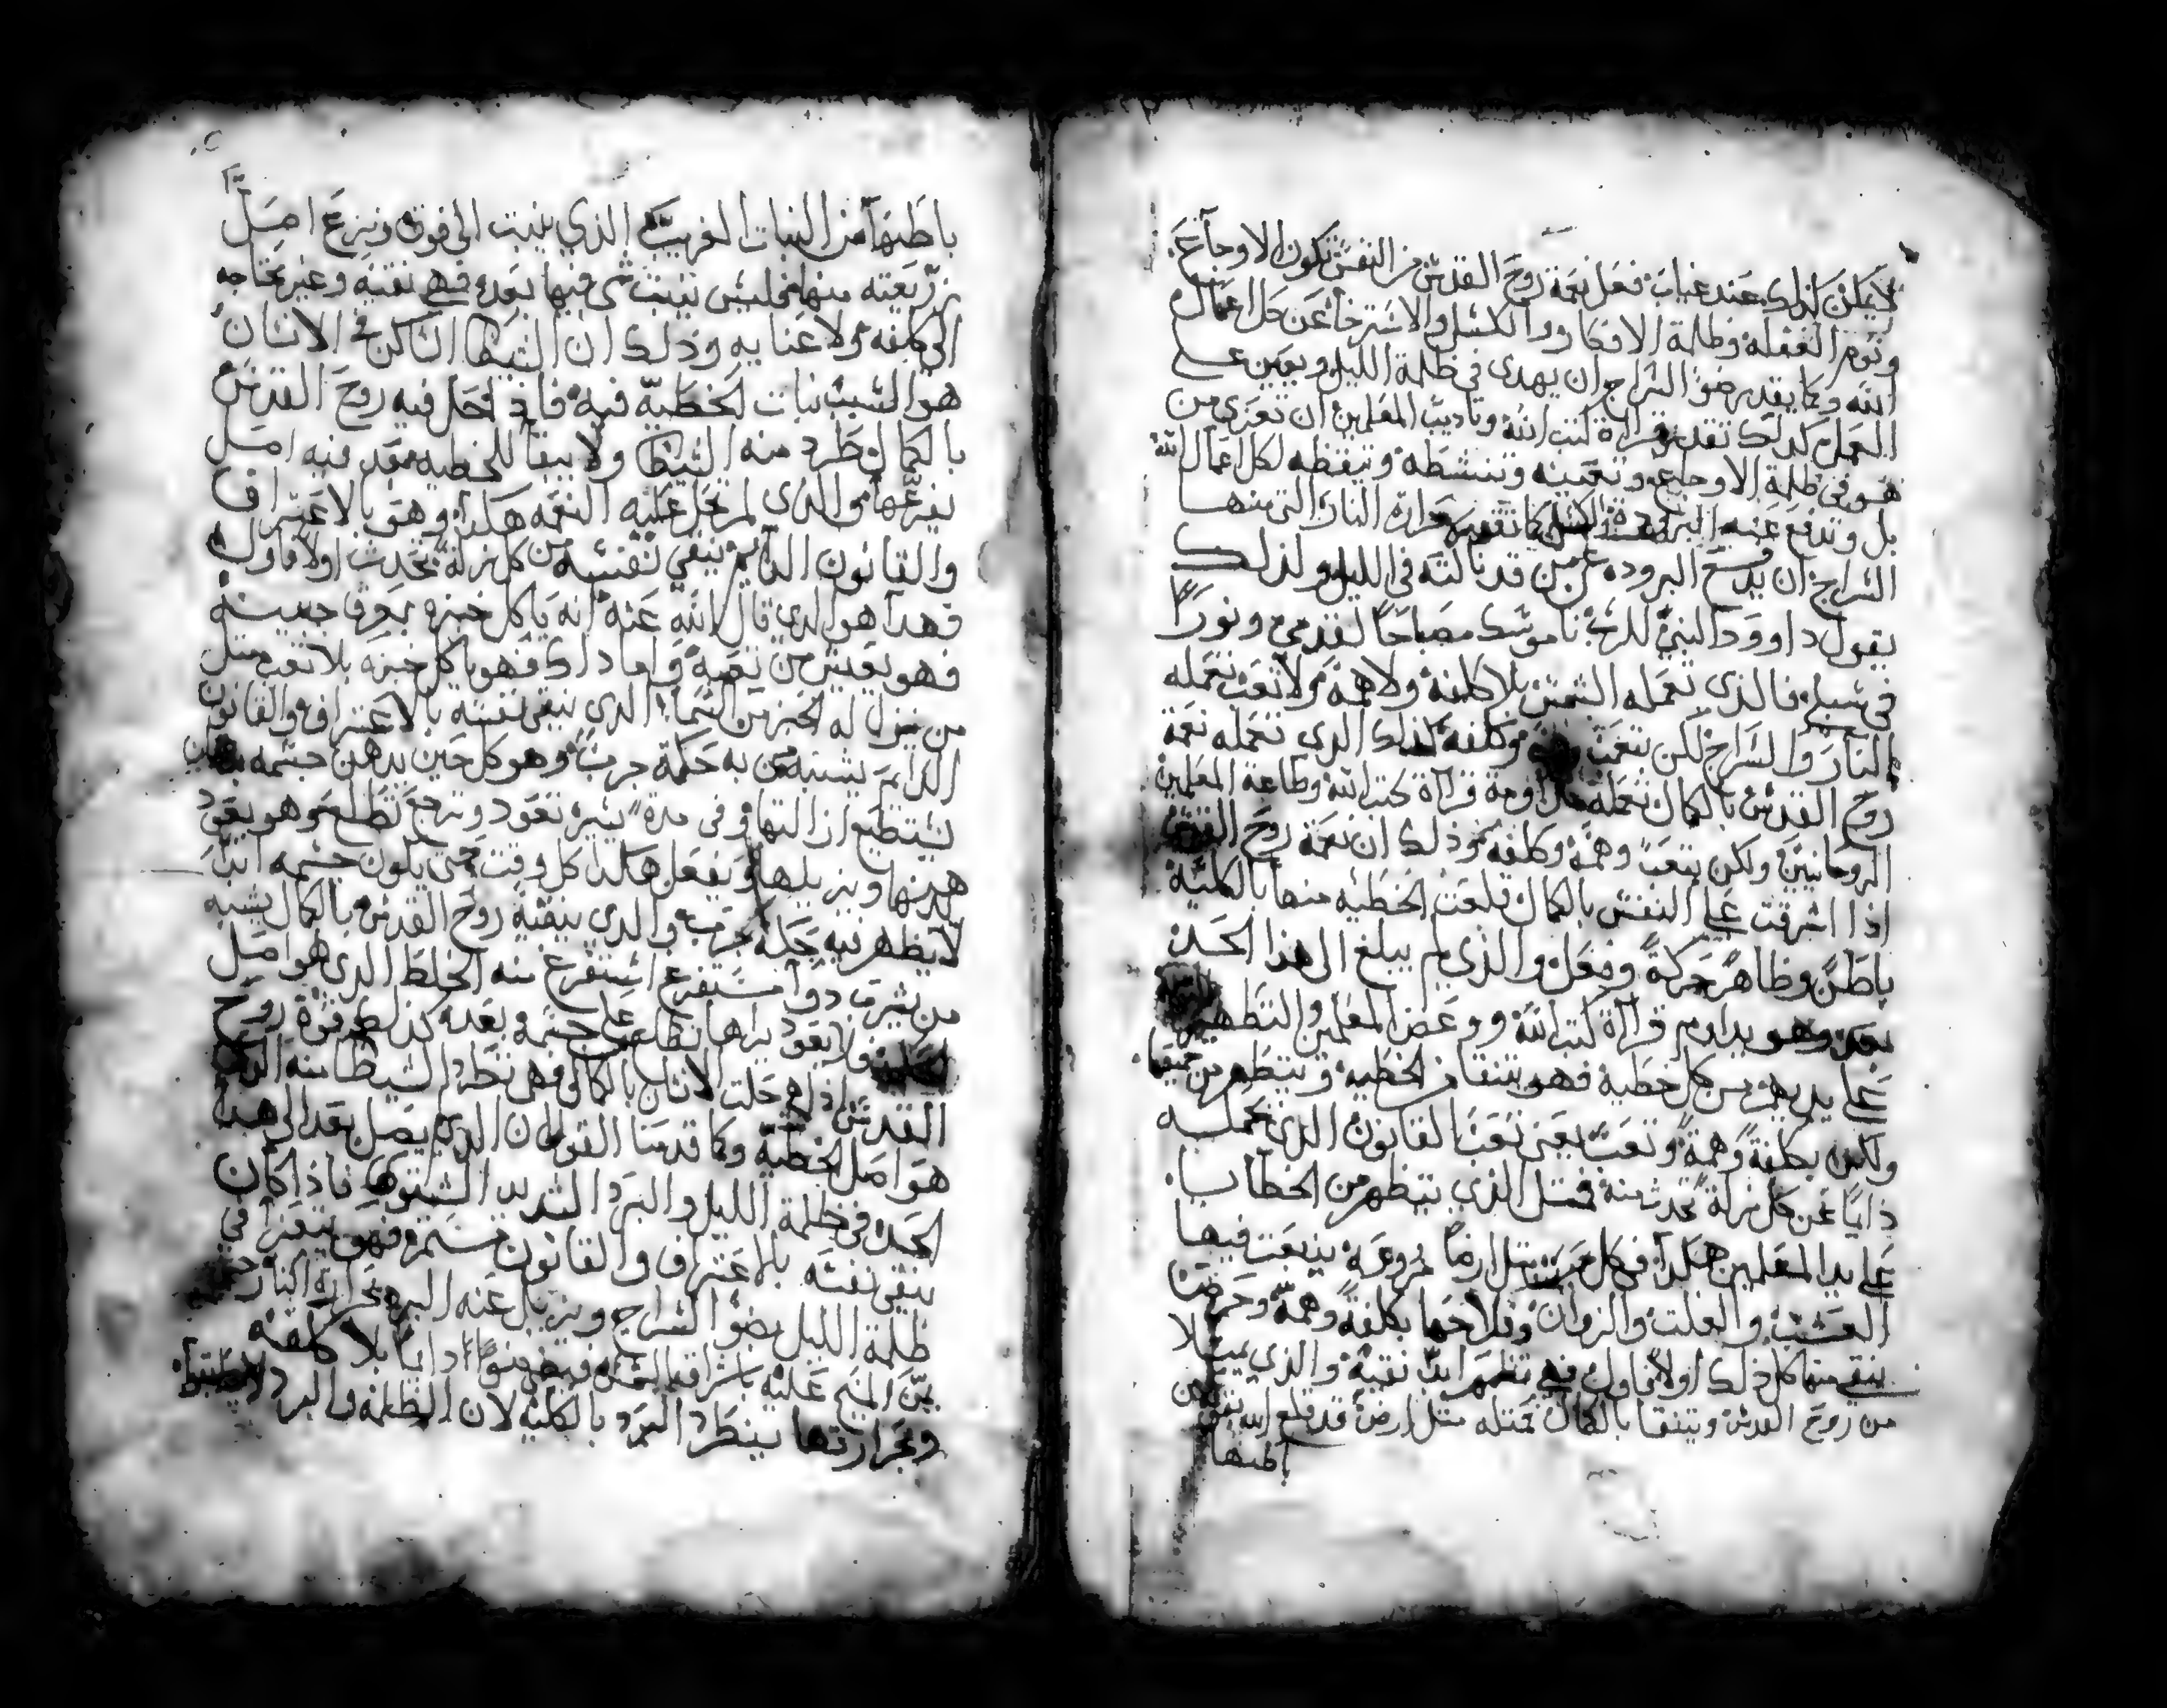 يمكن كذلك عند غياب فعل نعمة روح القدس من النفس تكون الاوجاع
ونوم الغفله وظلمة الافكار والكسل والاسترخا عن كل اعمال
الله وكما يقدر ضو السراج ان يهدى في ظلمة الليل ويعين على
العمل كدلك تقدر قراة كتب الله وتاديب المعلمين ان تعزى من
هو في ظلمة الاوجاع وتعينه وتنشطه وتيقظه لكل اعمال الله
بل وتدفع عنه البرودة الكسل كما تقدر حرارة النار التى منها
السراج ان يدفع البروده عن من قد نالته في الليل ولذلك
يقول داوود النبي للرب ناموسك مصباحا لقدمي ونورا
في سبلى فالذي تعمله الشمس بلا كلفة ولا همة ولا تعب تعمله
النار والسراج لكن بتعب وكلفه كذلك الدى تعمله نعمة
روح القدس بالكمال تعمله مداومة قراة كتب الله وطاعة المعلمين
الروحانيين ولكن بتعب وهمه وكلفه وذلك ان نعمة روح القدس
اذا اشرقت على النفس بالكمال قلعت الخطيه منها بالكلية
باطن وظاهر حركة وفعل والذي لم يبلغ الى هذا الحد
بعد وهو يداوم قراة كتب الله ووعض المعلمين والتطهير
على يديهم من كل خطية فهو يتنقا من الخطيه ويتطهر من جميعها
ولكن بكلفة وهمة وتعب يعنى تعب القانون الذي يحمله
دايما عن كل زلة تحدث منه فمثل الذي يتطهر من الخطايا
على يد المعلمين هكذا في كل مثل ارضا مزروعة ينبت فيها
العشب والغلت والزوان وفلاحها بكلفة وهمة وحرص
ينقى منها كل ذلك اولا فاول فهى تظهر ابدا نقية والذي يمتلا
من روح القدس ويتنقا بالكمال فمثله مثل ارض قد قلع الله
باطنها
باطنها من النبات الغريب الذي ينبت الى فوق ونزع اصل
زريعته منها فليس ينبت شى فيها بعد فهي نقيه وغير محتاجه
الى كلفه ولا عنا به وذلك ان الشيطا الساكن في الانسان
هو السبب نبات الخطية فيه فاذا حل فيه روح القدس
بالكمال طرد منه الشيطا ولا يبقا للخطيه بعد فيه اصل
يفرعها والذى لم تحل عليه النعمه هكذا وهو بالاعتراف
والقانون الدايم ينقي نفسه من كل زلة تحدث اولا فاول
فهدا هو الدي قال الله عنه انه ياكل خبزه بعرق جبينه
فهو يعيش من تعبه واما داك فهو ياكل خبزه بلا تعب مثل
من ينزل له الخبز من السماء الدى ينقى نفسه بالاعتراف والقانون
الدايم يشبه من به حكة جرب وهو كل حين يدهن جسمه
يستطيع ازالتها وفي مدة يسيره تعود وترجع تطلع وهو يعود
يدهنها ويزيلها ويفعل هكدا كل وقت حتى يكون جسمه ابدا
لا يظهر فيه حكة جرب والدي ينقيه روح القدس بالكمال يشبه
من شرب دوا مستفرغ استفرغ منه الخلط الدى هو اصل
فلا يعود يراها تطلع على جسمه وبعد كذلك قوة روح
القدس اذا هى حلت الانسان بالكمال فهى تطرد الشيطا منه الدى
هو اصل الخطية وكما قدمنا القول ان الدي لم يصل بعد الى هدا
الحد في ظلمة الليل والبرد الشديد الشتوي فاذا كان
ينقى نفسه بالاعتراف والقانون مستمره فهو يتعزا في
ظلمة الليل بضو السراج ويزيل عنه البرد بحرارة النار
المسيح عليه باشراقه الشمس دايما بلا كلفه
وبحرارتها ينطرد البرد بالكليه لان الظلمه والبرد